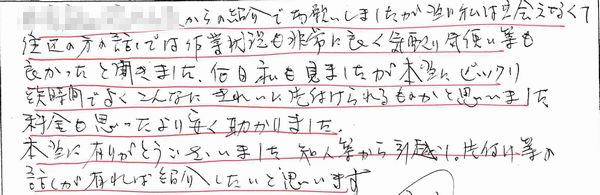 からの紹介でお願いしましたが当日私は立会えなくて
住区の方の話しでは作業状況も非常に良く気配り気使い等も
良かったと聞きました、後日私も見ましたが本当にビックリ
短時間でよくこんなにきれいに片付けられるものかと思いました
料金も思ったより安く助かりました.
本当に有りがとうございました 知人等から引越し、片付け等の
話しが有れば紹介したいと思います